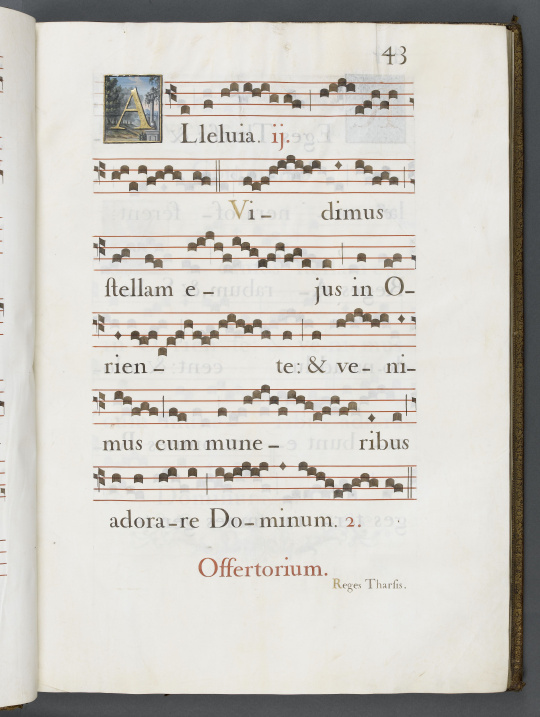 43
ALleluia. ij.
Vi- dimus
ſtellam e- jus in O-
rien- te: & ve- ni-
mus cum mune- ribus
adora-re Do-minum. 2.
Offertorium.
Reges Tharſis.